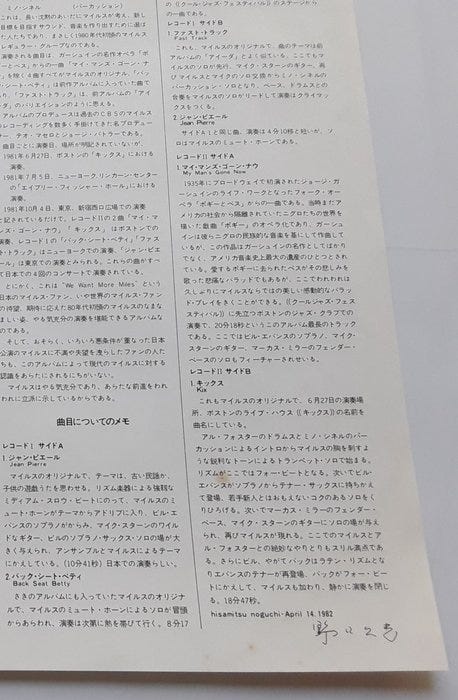 ミノ・シネル　　　（パーカッション）
これは、長い沈黙のあいだにマイルスが考え、新し
目標を目指すサウンド、音楽を作り出すために選ば
た人たちであり、まさしく1980年代初頭のマイルス
レギュラー・グループなのである。
演奏される曲目は、ガーシュインの名作オペラ「ポ
ーとベス」からの一曲「マイ・マンズ・ゴーン・ナ
」を除く4曲すべてがマイルスのオリジナル、「バッ
・シート・ベティ」は前作アルバムに入っていた曲で
り、「ファスト・トラック」は、前アルバムの「アイ
ダ」のバリエイションのように思える。
アルバムのプロデュースは過去のCBSのマイルス
レコーディングを数多く手掛けてきた名プロデュー
サー、テオ・マセロとジョージ・バトラーである。
曲目ごとに演奏日、場所が明記されていないが、
1981年6月27日、ボストンの「キックス」における
演奏。
1981年7月5日、ニューヨーク.リンカーン・センター
の「エイブリー・フィッシャー・ホール」における
演奏。
1981年10月4日、東京、新宿西口広場での演奏
と記されているだけで、レコードIIの2曲「マイ・マ
ンズ・ゴーン・ナウ」「キックス」はボストンでの
演奏、レコードIの「バック・シート・ベティ」「ファス
ト・トラック」はニューヨークでの演奏、「ジャン・ピエ
ール」は東京での演奏とみられる。これらの曲がすべ
て日本での4回のコンサートで演奏されている。
とにかく、これは“We Want More Miles”という
日本のマイルス・ファン、いや世界のマイルス・ファン
の待望、期待に応えた80年代初頭のマイルスのなま
ましい姿、やる気充分の演奏を堪能できるアルバムな
のである。
そして、おそらく、いろいろ悪条件が重なった日本
公演のマイルスに不満や失望を洩らしたファンの人た
ちも、このアルバムによって現代のマイルスに対する
認識をあらたにされるにちがいない。
マイルスはやる気充分であり、あらたな前進をわれ
われに立派に示しているからである。
曲目についてのメモ
レコードI サイドA
1.ジャン・ピエール
Jean Pierre
マイルスのオリジナルで、テーマは、古い民謡か、
子供の遊戯うたを思わせる。リズム楽器による強靱な
ミディアム・スロウ・ビートにのって、マイルスのミ
ュート・ホーンがテーマからアドリブに入り、ビル・エ
バンスのソプラノがからみ、マイク・スターンのワイル
ドなギター、ビルのソプラノ・サックス・ソロの場が大
きく与えられ、アンサンブルとマイルスによるテーマ
にかえしている。（10分41秒）日本での演奏らしい。
2.バック・シート・ベティ
Back Seat Betty
さきのアルバムにも入っていたマイルスのオリジナ
ルで、マイルスのミュート・ホーンによるソロが冒頭
からあらわれ、演奏は次第に熱を帯びて行く。8分17
の《クール・ジャズ・フェスティバル》のステージから
の一曲である。
レコードI サイドB
1.ファスト・トラック
Fast Track
これも、マイルスのオリジナルで、曲のテーマは前
アルバムの「アイーダ」とよく似ている。ここでもマイ
ルスのソロが先行、マイク・スターンのギター、再
びマイルスとマイクのソロ交換からミノ・シネルの
パーカッション・ソロとなり、ベース、ドラムスとの
合奏をマイルスのソロがリードして演奏はクライマ
ックスをつくる。
2.ジャン・ピエール
Jean Pierre
サイドA1と同じ曲。演奏は4分10秒と短いが、ソ
ロはマイルスのミュート・ホーンである。
レコードII サイドA
1.マイ・マンズ・ゴーン・ナウ
My Man's Gone Now
1935年にブロードウェイで初演されたジョージ・ガー
シュインのライフ・ワークとなったフォーク・オー
ペラ「ポギーとベス」からの一曲である。当時まだア
メリカの社会から隔離されていたニグロたちの世界を
描いた戯曲「ポギー」のオペラ化であり、ガーシュイ
ンは彼らニグロの民族的な音楽を基にして作曲して
いるが、この作品はガーシュインの名作としてばかり
でなく、アメリカ音楽史上最大の遺産のひとつとされ
ている。愛するポギーに去られたベスがその悲しみを
歌った悲痛なバラッドでもあるが、ここでわれわれは
久しぶりにマイルスならではの美しい感動的なバラッ
ド・プレイをきくことができる。《クール・ジャズ・フェス
ティバル》に先立つボストンのジャズ・クラブでの
演奏で、20分18秒というこのアルバム最長のトラック
である。ここではビル・エバンスのソプラノ、マイク・
スターンのギター、マーカス・ミラーのフェンダー・
ベースのソロもフィーチャーされている。
レコードII サイドB
1.キックス
Kix
これもマイルスのオリジナルで、6月27日の演奏場
所、ボストンのライブ・ハウス《キックス》の名前を
曲名にしている。
アル・フォスターのドラムスとミノ・シネルのパー
カッションによるイントロからマイルスの胸を刺すよ
うな鋭利なトーンによるトランペット・ソロで始まる。
リズムがここではフォー・ビートとなる。次いでビル・エ
バンスがソプラノからテナー・サックスに持ちかえ
て登場、若手新人とはおもえないコクのあるソロをく
りひろげる。次いでマーカス・ミラーのフェンダー・
ベース、マイク・スターンのギターにソロの場が与え
られ、再びマイルスが現れる。ここでのマイルスとア
ル・フォスターとの絶妙なやりとりもスリル満点であ
る。さらにビル、やがてバックはラテン・リズムとな
りエバンスのテナーが再登場、バックがフォー・ビー
トにかえして、マイルスも加わり、静かに演奏を閉じ
る。18分47秒。
hisamitsu noguchi-April 14.1982
野口久光